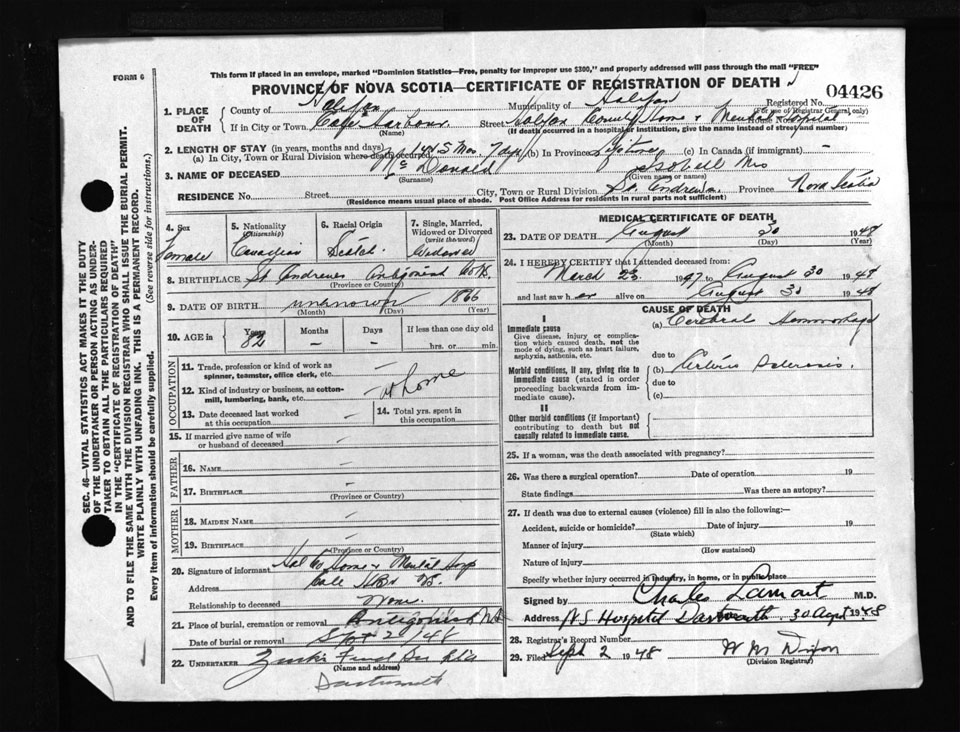 FORM 6
This form if placed in an envelope, marked "Dominion Statistics—Free, penalty for improper use $300," and properly addressed will pass through the mail "FREE"
PROVINCE OF NOVA SCOTIA—CERTIFICATE OF REGISTRATION OF DEATH
04426
1. PLACE OF DEATH
County of Halifax Municipality of Halifax Registered No.
(For use of Registrar General, only)
If in City or Town Cole Harbour Street Halifax County Home & Mental Hospital
(Name) (If death occurred in a hospital or institution, give the name instead of street and number)
2. LENGTH OF STAY (in years, months and days)
(a) In City, Town or Rural Division where death occurred 5 Mos. 7 days (b) In Province Lifetime (c) In Canada (if immigrant) —
3. NAME OF DECEASED Mc Donald Isobell Mrs
(Surname) (Given name or names)
RESIDENCE No. Street City, Town or Rural Division St. Andrews Province Nova Scotia
(Residence means usual place of abode. Post Office Address for residents in rural parts not sufficient)
4. Sex Female
5. Nationality (Citizenship) Canadian
6. Racial Origin Scotch
7. Single, Married, Widowed or Divorced (write the word) Widowed
8. BIRTHPLACE St Andrews Antigonish Co N.S.
(Province or Country)
9. DATE OF BIRTH unknown 1866
(Month) (Day) (Year)
10. AGE in Years 82 Months — Days — If less than one day old
hrs. or min.
OCCUPATION
11. Trade, profession or kind of work as spinner, teamster, office clerk, etc. —
12. Kind of industry or business, as cotton-mill, lumbering, bank, etc. at home
13. Date deceased last worked at this occupation —
14. Total yrs. spent in this occupation
15. If married give name of wife or husband of deceased —
FATHER
16. NAME —
17. BIRTHPLACE —
(Province or Country)
MOTHER
18. MAIDEN NAME —
19. BIRTHPLACE —
(Province or Country)
20. Signature of informant Hal Co Home & Mental Hosp
Address Cole Hbr NS.
Relationship to deceased None
21. Place of burial, cremation or removal Antigonish N.S.
Date of burial or removal Sept 2/48
22. UNDERTAKER
(Name and address)
Dartmouth
MEDICAL CERTIFICATE OF DEATH
23. DATE OF DEATH August 30 1948
(Month) (Day) (Year)
24. I HEREBY CERTIFY that I attended deceased from:
March 23 1947 to August 30 1948
and last saw h er alive on August 30 1948
CAUSE OF DEATH
I
Immediate cause
Give disease, injury or complication which caused death, not the mode of dying, such as heart failure, asphyxia, asthenia, etc.
(a) Cerebral Hemmorhage
due to
Morbid conditions, if any, giving rise to immediate cause (stated in order proceeding backwards from immediate cause).
(b) Arterio Sclerosis.
due to
(c)
II
Other morbid conditions (if important) contributing to death but not causally related to immediate cause.
25. If a woman, was the death associated with pregnancy?
26. Was there a surgical operation? Date of operation 19
State findings Was there an autopsy?
27. If death was due to external causes (violence) fill in also the following:—
Accident, suicide or homicide? Date of injury 19
(State which)
Manner of injury
(How sustained)
Nature of injury
Specify whether injury occurred in industry, in home, or in public place
Signed by Charles Lamont M.D.
Address N S Hospital Dartmouth 30 Aug 1948
28. Registrar's Record Number
29. Filed Sept 2 1948 W M Dixon
(Division Registrar)
SEC. 46—VITAL STATISTICS ACT MAKES IT THE DUTY
OF THE UNDERTAKER OR PERSON ACTING AS UNDER-
TAKER TO OBTAIN ALL THE PARTICULARS REQUIRED
IN THE "CERTIFICATE OF REGISTRATION OF DEATH"
AND TO FILE THE SAME WITH THE DIVISION REGISTRAR WHO SHALL ISSUE THE BURIAL PERMIT.
WRITE PLAINLY WITH UNFADING INK. THIS IS A PERMANENT RECORD.
Every item of information should be carefully supplied. (See reverse side for instructions.)